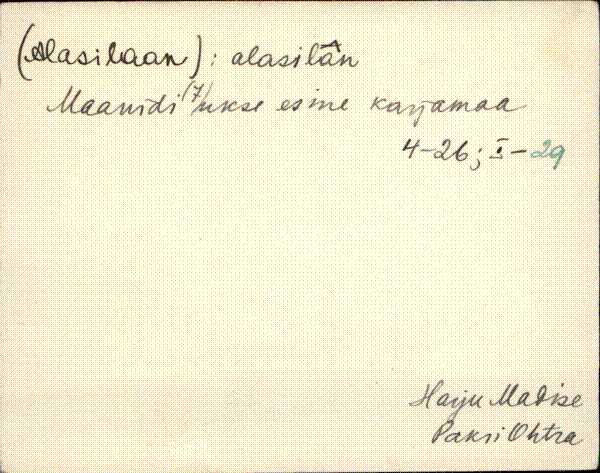 (Alasilaan): alasilān
Maanidi(7)ukse esine karjamaa
4-26; I-29
Harju Madise
Pakri Ohtra